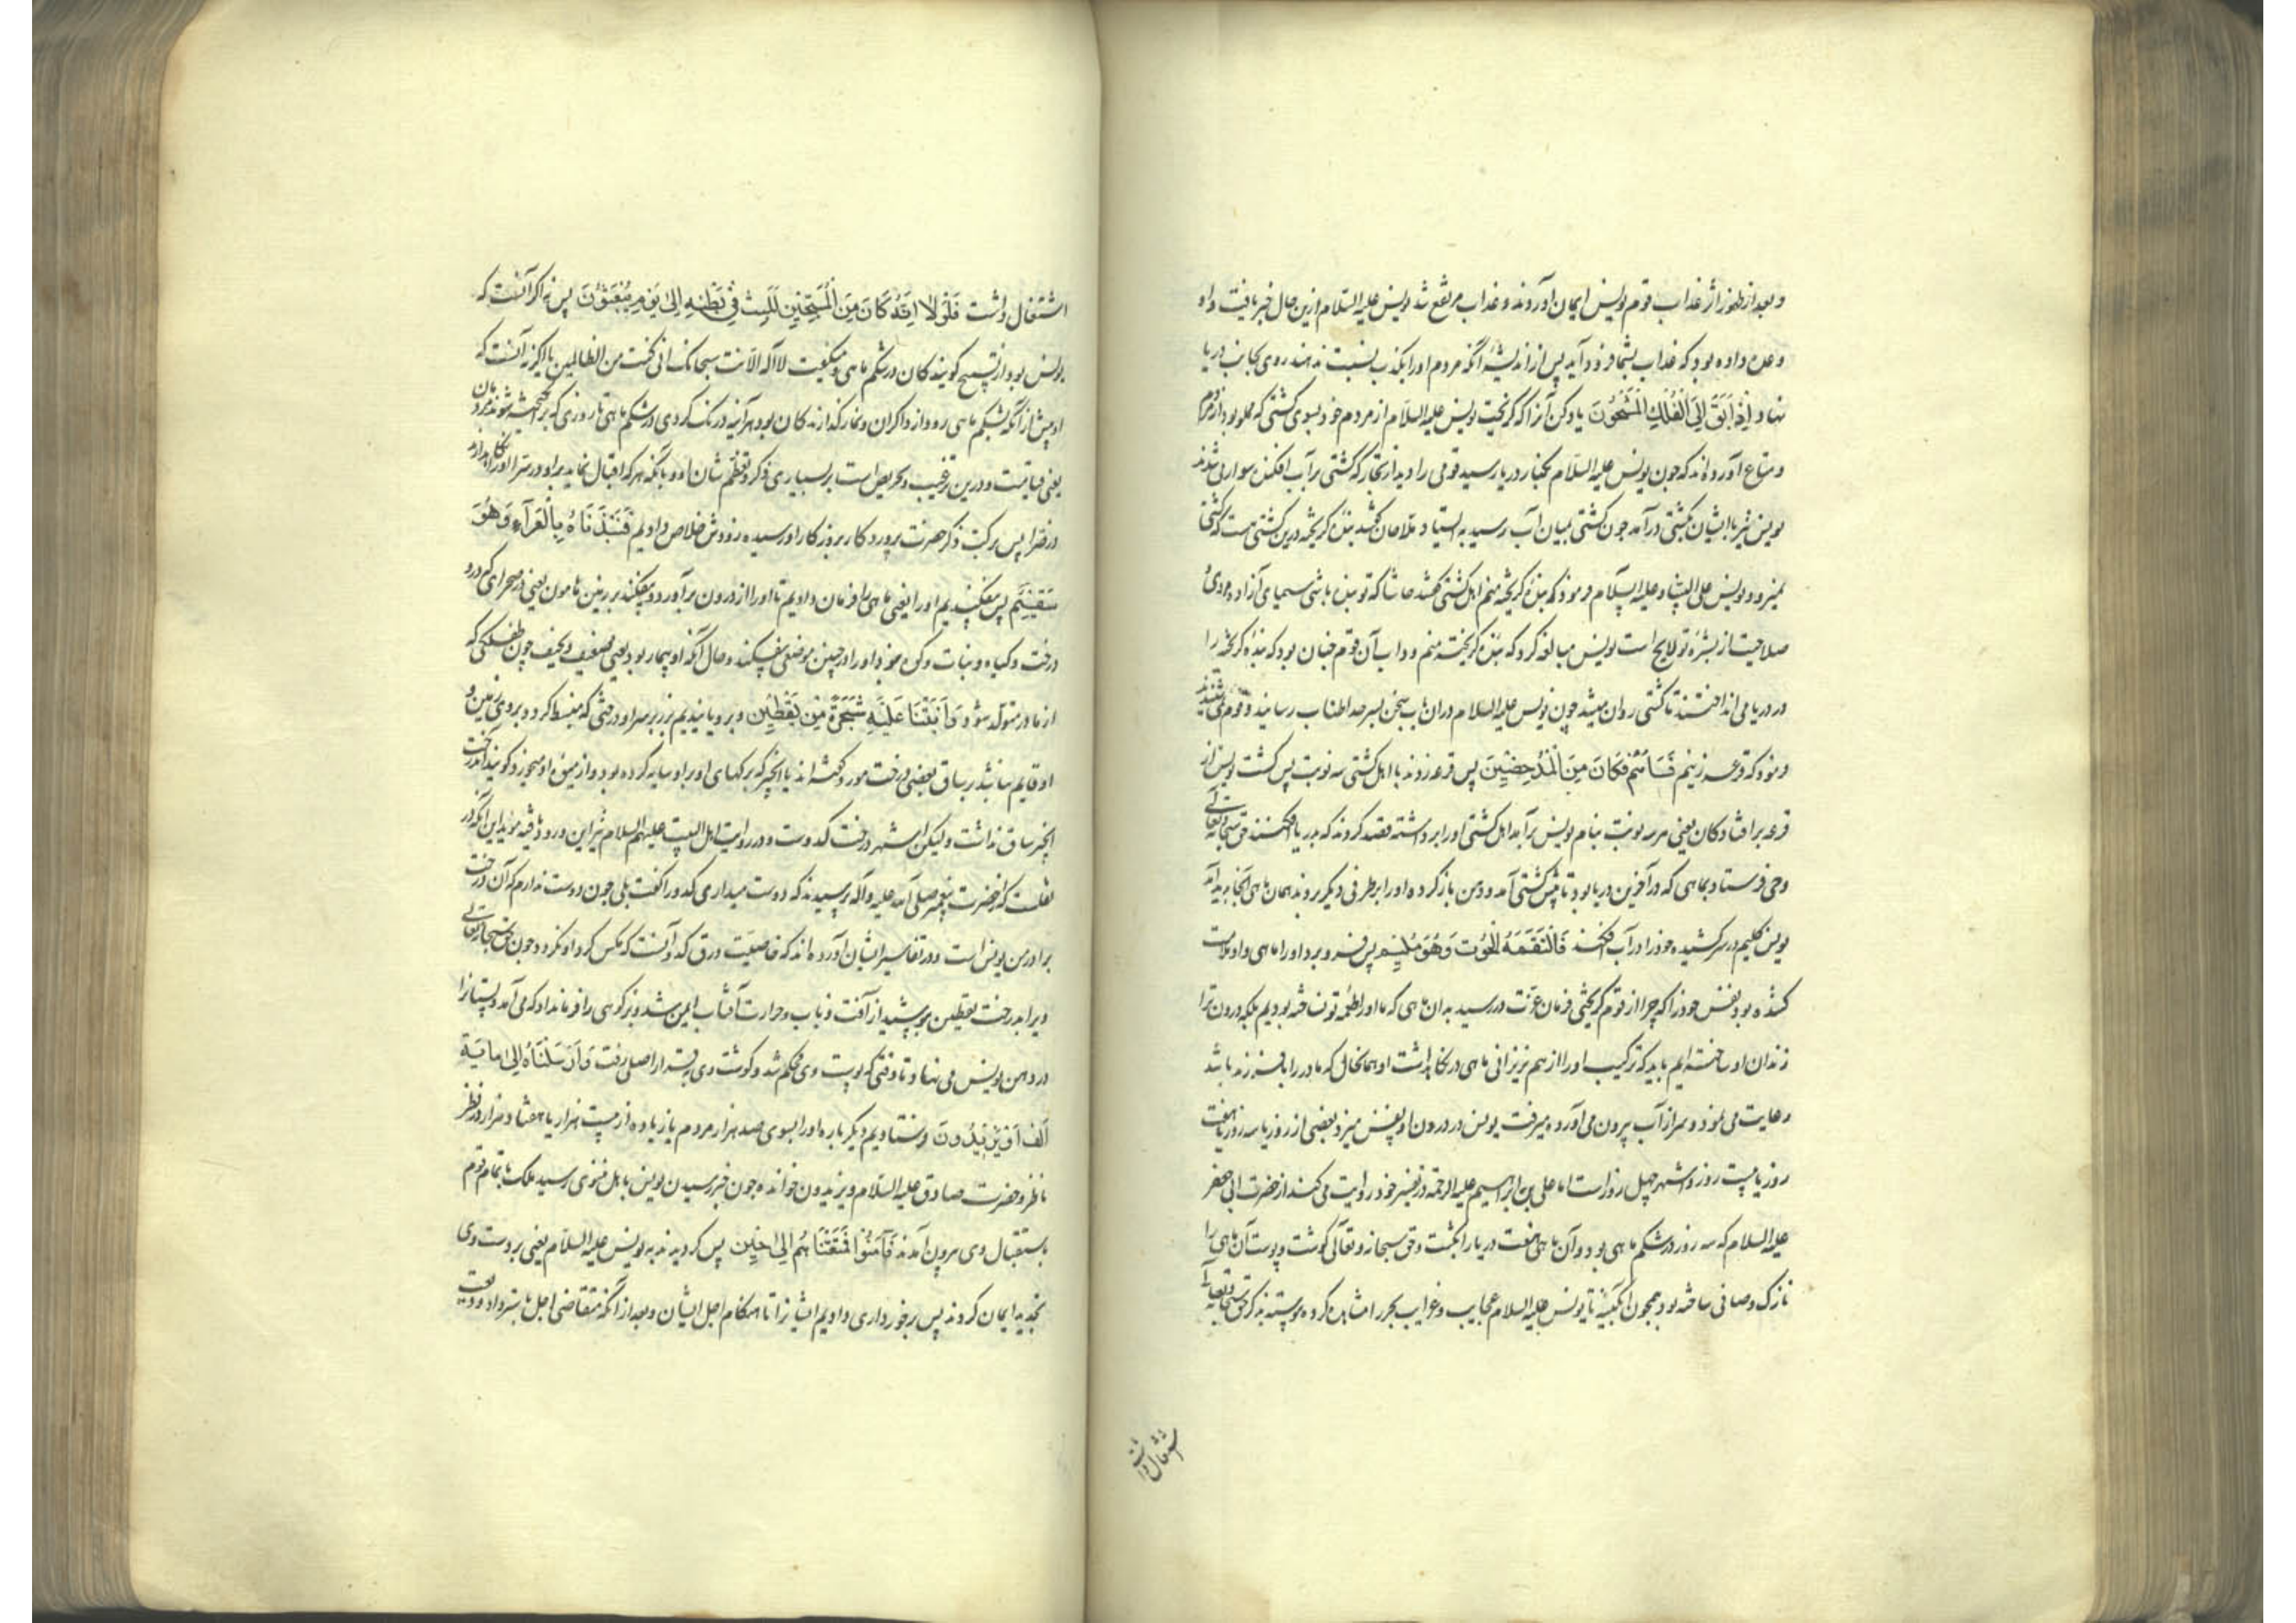 و بعد از ظهور اثر عذاب قوم یونس ایمان آوردند و عذاب مرتفع شد یونس علیه السلام ازین حال خبر یافت و او
وعده داده بود که عذاب بشما فرود آید پس از اندیشهٔ آنکه مردم او را بکذب نسبت ندهند روی بجانب دریا
نهاد اِذْ اَبَقَ اِلَی الْفُلْكِ الْمَشْحُونِ یاد کن آنرا که گریخت یونس علیه السلام از مردم خود بسوی کشتی که مملو بود از مردم
و متاع آورده اند که چون یونس علیه السلام بکنار دریا رسید قومی را دید از تجار که کشتی بر آب افکنده سوار می شدند
یونس نیز با ایشان بکشتی درآمد چون کشتی بمیان آب رسید به ایستاد ملاحان گفتند بندهٔ گریخته درین کشتی هست که کشتی
نمیرود یونس علیه السلام فرمود که بندهٔ گریخته منم اهل کشتی گفتند حاشا که تو بنده باشی سیمای آزاده مردی و
صلاحیت از بشرهٔ تو لایح است یونس مبالغه کرد که بندهٔ گریخته منم و داب آن قوم چنان بود که بندهٔ گریخته را
در دریا می انداختند تا کشتی روان میشد چون یونس علیه السلام دران باب سخن بسرحد اطناب رسانید و قوم نمی شنیدند
فرمود که قرعه زنیم فَسَاهَمَ فَكَانَ مِنَ الْمُدْحَضِینَ پس قرعه زدند با اهل کشتی سه نوبت پس گشت یونس از
قرعه بر افتادگان یعنی هر سه نوبت بنام یونس برآمد اهل کشتی او را برداشته قصد کردند که بدریا افکنند حق سبحانه و تعالی
وحی فرستاد بماهی که در آخرین دریا بود تا پیش کشتی آمد و دهن باز کرده او را بر طرفی دیگر بردند همان ماهی آنجا پدید آمد
یونس گلیم در سر کشیده خود را در آب افکند فَالْتَقَمَهُ الْحُوتُ وَهُوَ مُلِیمٌ پس فرو برد او را ماهی و او ملامت
کننده بود نفس خود را که چرا از قوم گریختی فرمان عزت در رسید به آن ماهی که ما او را طعمهٔ تو نساخته بودیم بلکه درون ترا
زندان او ساخته ایم باید که ترکیب او را از هم نریزانی ماهی در نگاهداشت او همانحال که مادر را با فرزند باشد
رعایت می نمود و سر از آب بیرون می آورد و میرفت یونس در درون او نفس میزد بعضی از روز یا سه روز یا هفت
روز یا بیست روز و اشهر چهل روز است اما علی بن ابراهیم علیه الرحمه در تفسیر خود روایت می کند از حضرت ابی جعفر
علیه السلام که سه روز در شکم ماهی بود و آن ماهی هفت دریا را بگشت و حق سبحانه و تعالی گوشت و پوست آن ماهی را
نازک و صافی ساخته بود همچون آبگینه تا یونس علیه السلام عجایب و غرایب بحر را مشاهده کرده پیوسته بذکر حق سبحانه و تعالی
اشتغال داشت
اشتغال داشت فَلَوْلَا اَنَّهُ كَانَ مِنَ الْمُسَبِّحِینَ لَلَبِثَ فِی بَطْنِهِ اِلَی یَوْمِ یُبْعَثُونَ پس نه اگر آنست که
یونس بود از تسبیح گویندگان در شکم ماهی و میگفت لا اله الا انت سبحانک انی کنت من الظالمین یا اگر نه آنست که
او پیش از آنکه بشکم ماهی رود از ذاکران و نمازگذارندگان بود هرآینه درنگ کردی در شکم ماهی تا روزی که برانگیخته شوند مردمان
یعنی قیامت و درین ترغیب و تحریص است بر بسیاری ذکر و تعظیم شان او و بآنکه هر که اقبال نماید بر او در سرا او را نگاه دارد
در ضرا پس برکت ذکر حضرت پروردگار بروزگار او رسیده زودش خلاص دادیم فَنَبَذْنَاهُ بِالْعَرَآءِ وَهُوَ
سَقِیمٌ پس بیفکندیم او را یعنی ماهی را فرمان دادیم تا او را از درون برآورد و بیفکند بر زمین هامون یعنی در صحرای که درو
درخت و گیاه و نبات و کوه نبود او را در چنین موضعی بیفکند و حال آنکه او بیمار بود یعنی ضعیف و نحیف چون طفلکی که
از مادر متولد شود وَاَنْبَتْنَا عَلَیْهِ شَجَرَةً مِنْ یَقْطِینٍ و برویانیدیم بر زبر سر او درختی که منبسط گردد بر روی زمین و
او قایم نباشد بر ساق بعضی درخت مورد گفته اند یا انجیر که برگهای او بر او سایه کرده بود و از میوه او میخورد و گویند آن درخت
انجیر ساق نداشت ولیکن اشهر درخت کدوست و در روایت اهل البیت علیهم السلام نیز این ورود یافته مؤید این آنکه در
نقلست که از حضرت پیغمبر صلی الله علیه و آله پرسیدند که دوست میداری کدو را گفت بلی چون دوست ندارم که آن درخت
برادر من یونس است و در تفاسیر ایشان آورده اند که خاصیت ورق کدو آنست که مگس گرد او نگردد چون حق سبحانه و تعالی
ویرا بدرخت یقطین بپوشید از آفت ذباب و حرارت آفتاب ایمن شد و بزکوهی را فرمان داد که می آمد و پستانرا
در دهن یونس می نهاد تا وقتی که پوست وی محکم شد و گوشت وی قرار اصلی رفت وَاَرْسَلْنَاهُ اِلَی مِائَةِ
اَلْفٍ اَوْ یَزِیدُونَ و فرستادیم دیگرباره او را بسوی صد هزار مردم یا زیاده از بیست هزار یا هفتاد هزار در نظر
ناظر و حضرت صادق علیه السلام و یزیدون خوانده چون خبر رسیدن یونس باهل نینوی رسید ملک با تمام قوم
باستقبال وی بیرون آمدند فَآمَنُوا فَمَتَّعْنَاهُمْ اِلَی حِینٍ پس گرویدند به یونس علیه السلام یعنی بر دست وی
تجدید ایمان کردند پس برخورداری دادیم ایشانرا تا هنگام اجل ایشان و بعد از آنکه متقاضی اجل باسترداد ودیعت